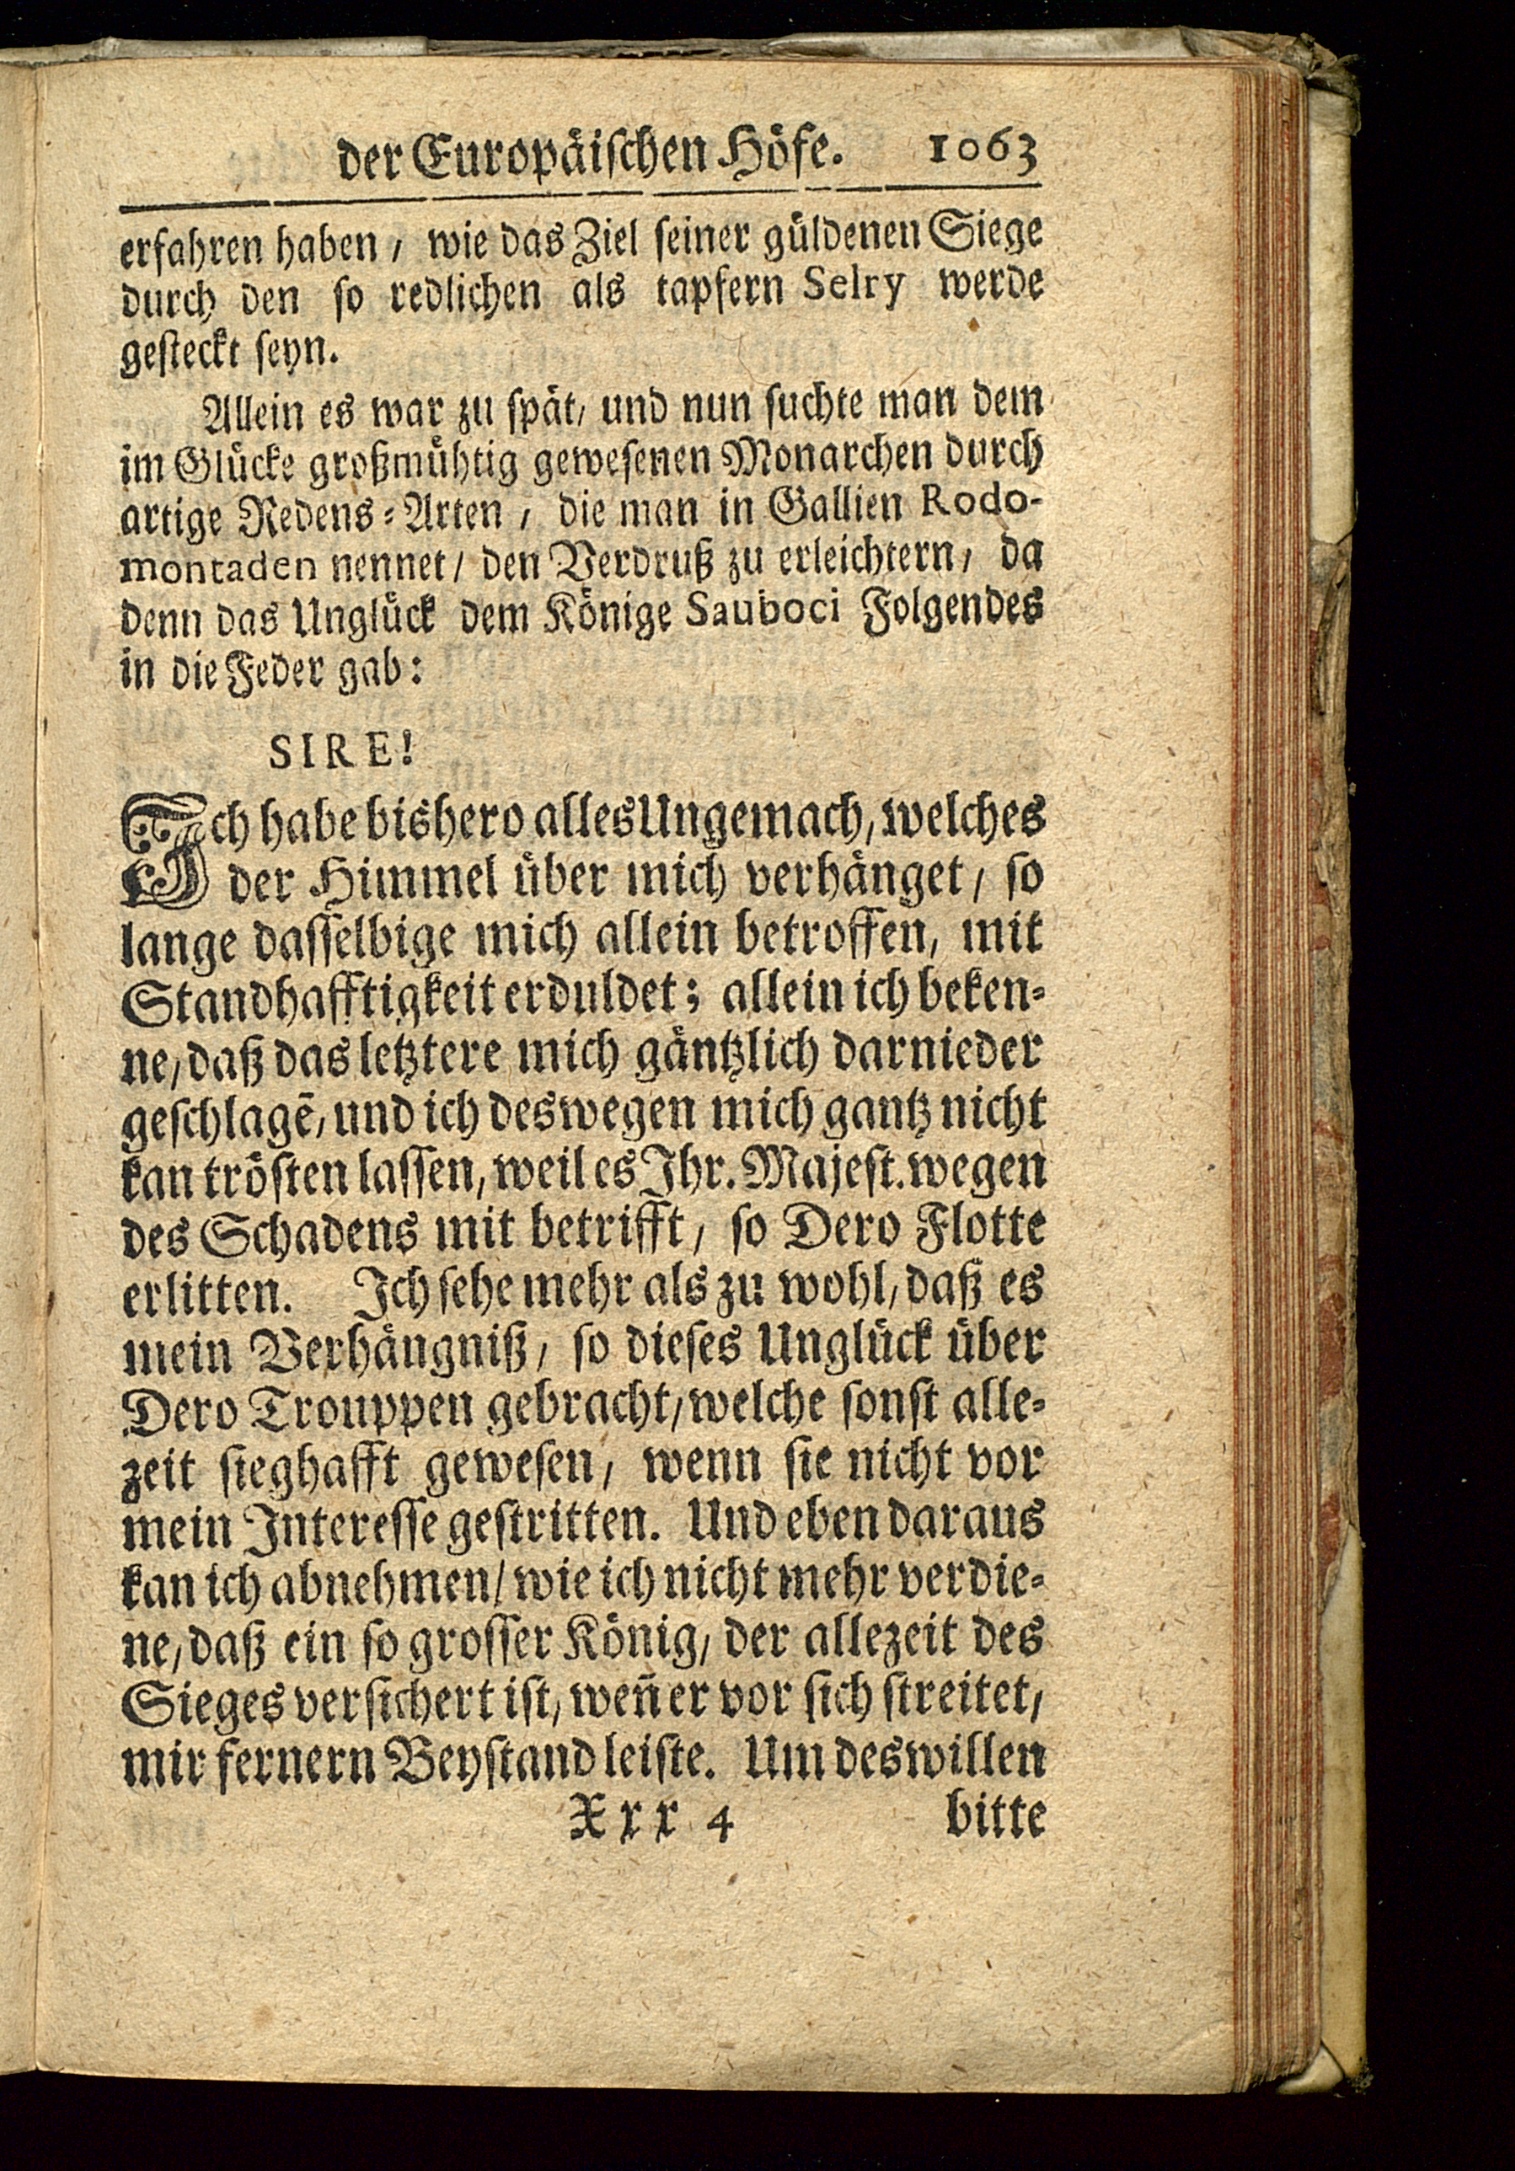 der Europäiſchen Höfe. 1063
erfahren haben / wie das Ziel ſeiner güldenen Siege
durch den ſo redlichen als tapfern Selry werde
geſteckt ſeyn.
Allein es war zu ſpät / und nun ſuchte man dem
im Glücke großmühtig geweſenen Monarchen durch
artige Redens-Arten / die man in Gallien Rodo-
montaden nennet / den Verdruß zu erleichtern / da
denn das Unglück dem Könige Sauboci Folgendes
in die Feder gab:
SIRE!
Ich habe bishero alles Ungemach, welches
der Himmel über mich verhänget / ſo
lange daſſelbige mich allein betroffen, mit
Standhafftigkeit erduldet; allein ich beken-
ne / daß das letztere mich gäntzlich darnieder
geſchlagē, und ich deswegen mich gantz nicht
kan tröſten laſſen, weil es Ihr. Majeſt. wegen
des Schadens mit betrifft / ſo Dero Flotte
erlitten. Ich ſehe mehr als zu wohl, daß es
mein Verhängniß / ſo dieſes Unglück über
Dero Trouppen gebracht / welche ſonſt alle-
zeit ſieghafft geweſen / wenn ſie nicht vor
mein Intereſſe geſtritten. Und eben daraus
kan ich abnehmen / wie ich nicht mehr verdie-
ne / daß ein ſo groſſer König / der allezeit des
Sieges verſichert iſt, weñ er vor ſich ſtreitet /
mir fernern Beyſtand leiſte. Um deswillen
Xxx 4 bitte